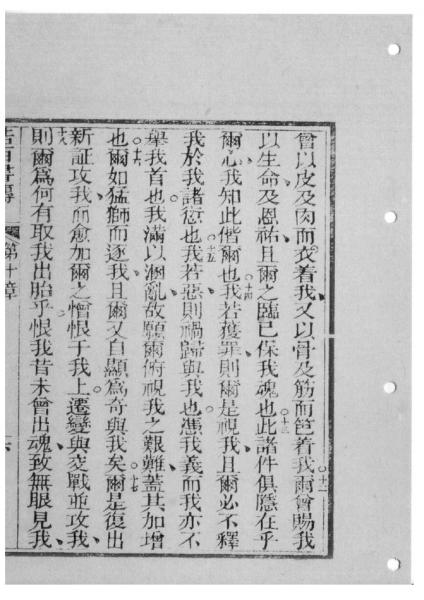 曾以皮及肉而衣着我又以骨及筋而笆着我十二爾曾賜我
以生命及恩祐且爾之臨已保我魂也十三此諸件俱隱在乎
爾心我知此偕爾也十四我若獲罪則爾是視我且爾必不釋
我於我諸愆也十五我若惡則禍歸與我也憑我義而我亦不
舉我首也我滿以溷亂故願爾俯視我之艱難蓋其加增
也十六爾如猛獅而逐我且爾又自顯為奇與我矣十七爾是復出
新証攻我而愈加爾之憎恨于我上遷變與交戰並攻我
十八則爾為何有取我出胎乎恨我昔未曾出魂致無眼見我
第十章